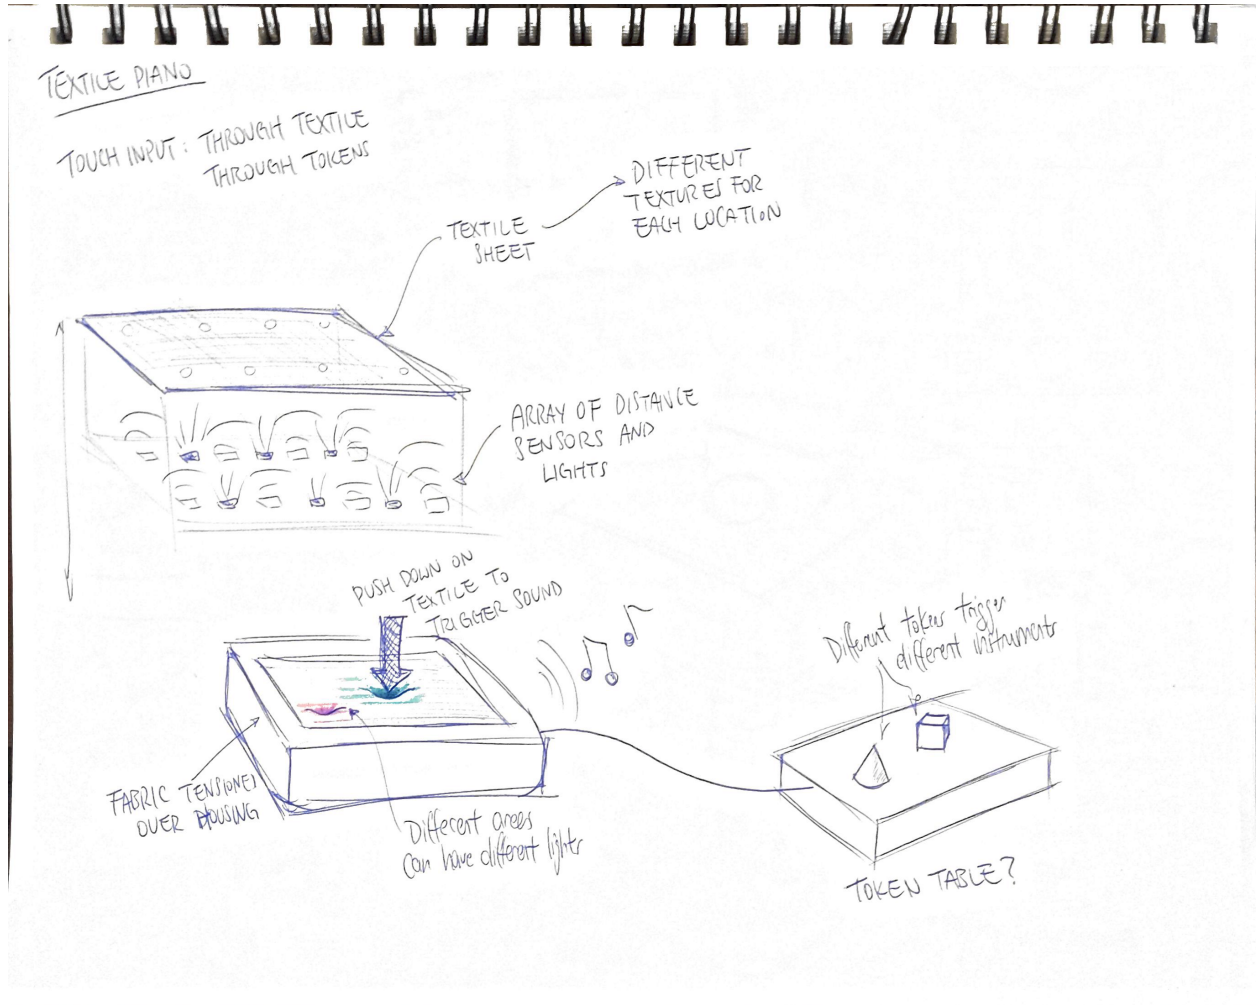 TEXTILE PIANO
TOUCH INPUT: THROUGH TEXTILE
THROUGH TOKENS
TEXTILE
SHEET
DIFFERENT
TEXTURES FOR
EACH LOCATION
ARRAY OF DISTANCE
SENSORS AND
LIGHTS
PUSH DOWN ON
TEXTILE TO
TRIGGER SOUND
FABRIC TENSIONED
OVER HOUSING
Different areas
can have different lights
Different tokens trigger
different instruments
TOKEN TABLE?